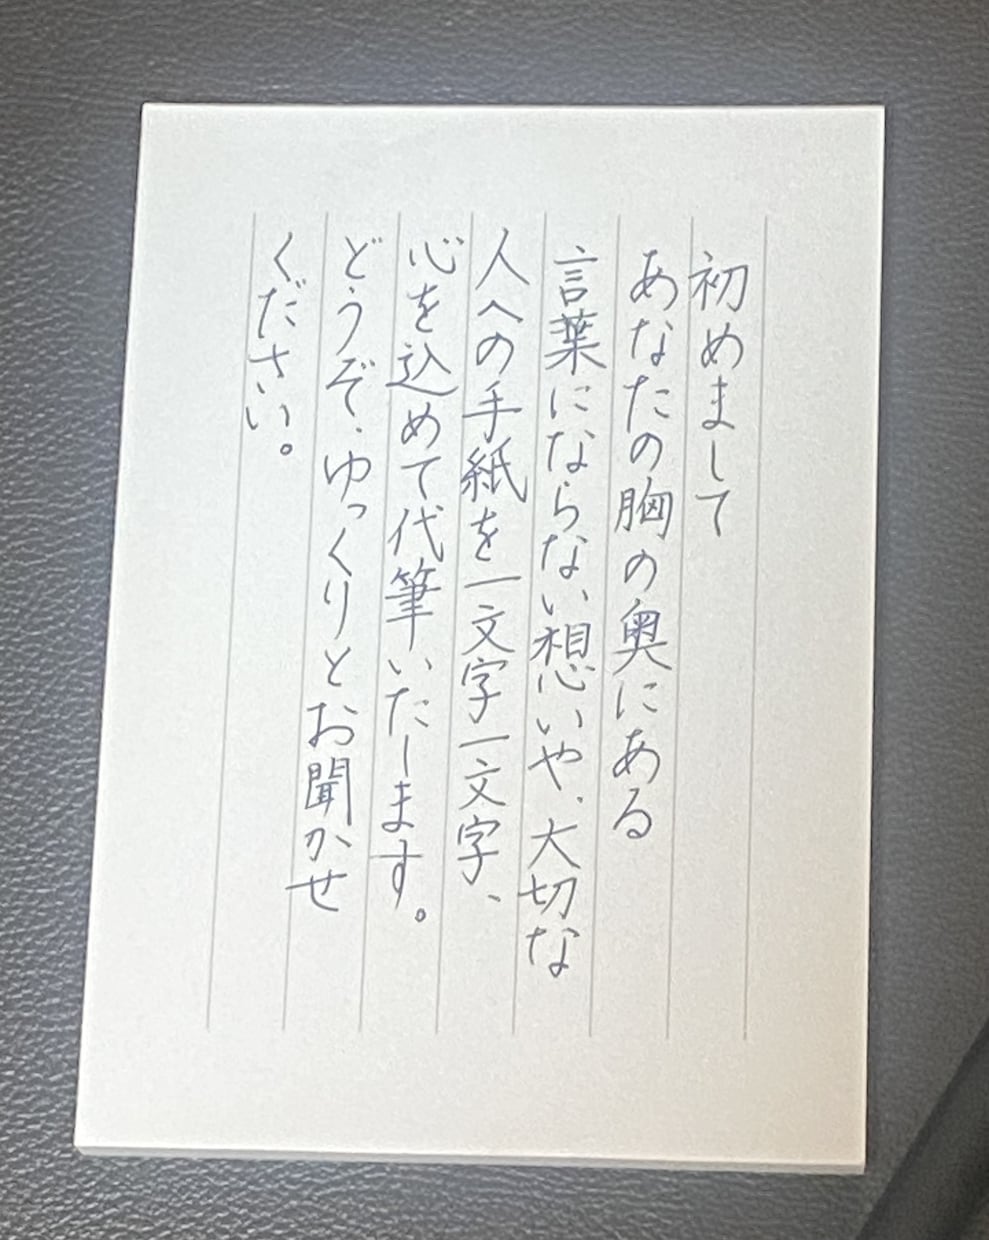 初めまして
あなたの胸の奥にある
言葉にならない想いや、大切な
人への手紙を一文字一文字、
心を込めて代筆いたします。
どうぞ、ゆっくりとお聞かせ
ください。